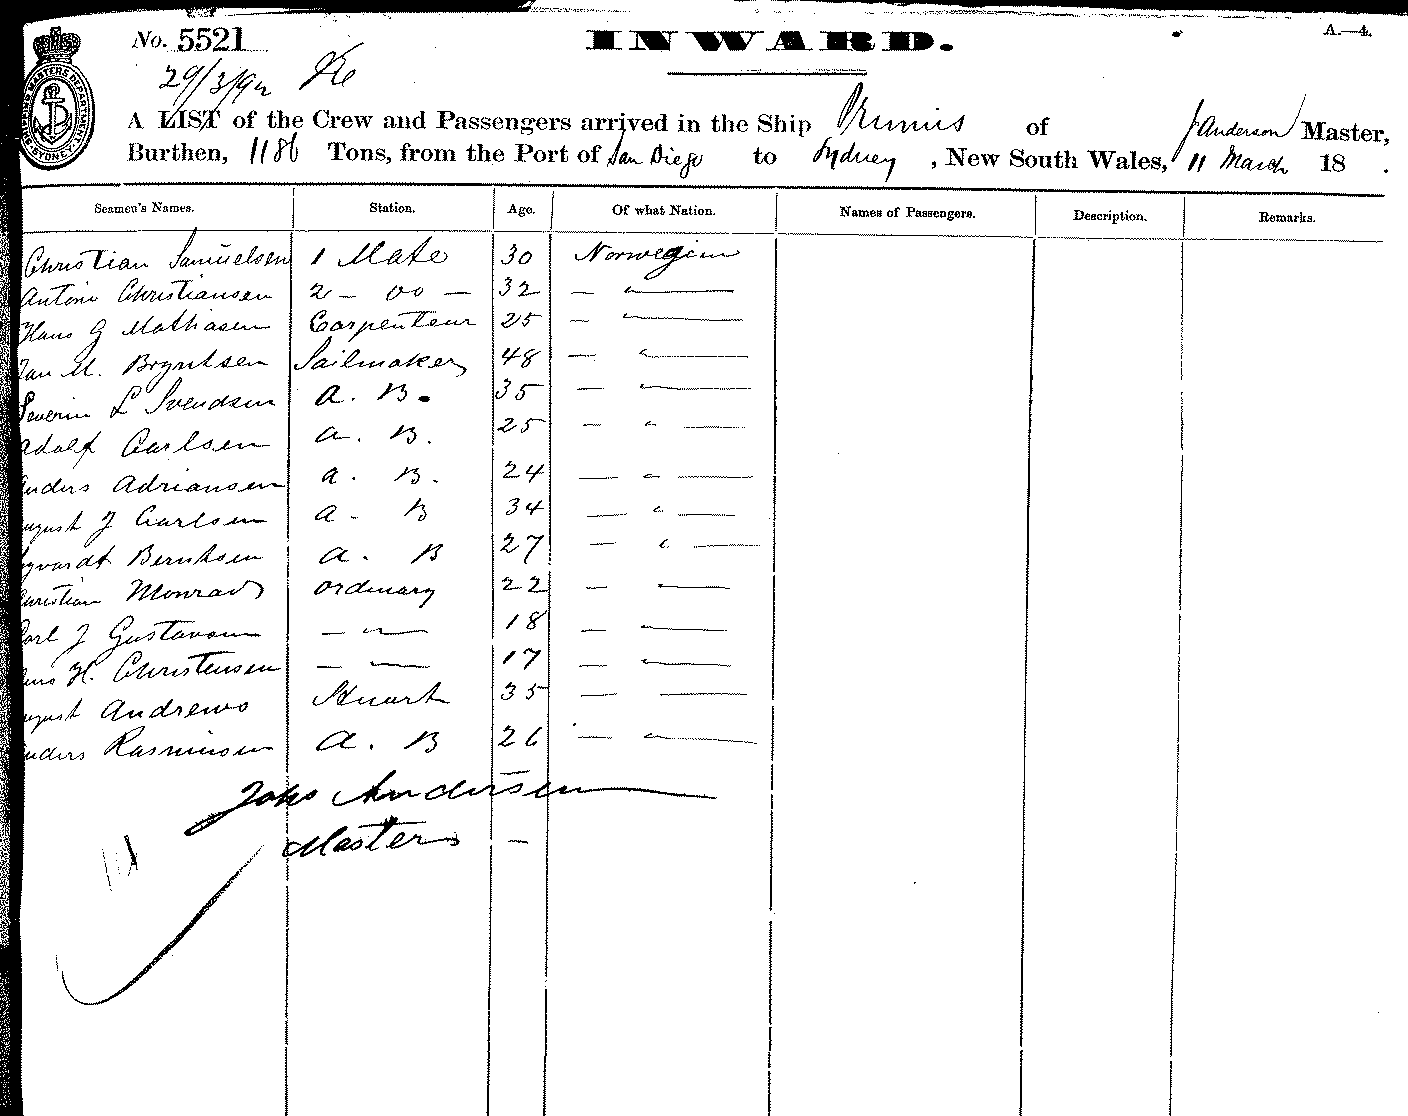 No. 5521 INWARD. A.—4.
29/3/92
A LIST of the Crew and Passengers arrived in the Ship Primus of J Anderson Master,
Burthen, 1186 Tons, from the Port of San Diego to Sydney, New South Wales, 11 March 18 .
Seamen's Names. Station. Age. Of what Nation. Names of Passengers. Description. Remarks.
Christian Samuelsen 1 Mate 30 Norwegian
Anton Christiansen 2 — do — 32 — " —
Hans G Mathiasen Carpenteur 25 — " —
M. Sailmaker 48 — " —
Severin L Svendsen A. B. 35 — " —
Adolf Carlsen A. B. 25 — " —
Anders Adriansen A. B. 24 — " —
August J Carlsen A. B 34 — " —
Berntsen A. B 27 — " —
Christian Monrad ordinary 22 — " —
Carl J Gustavsen — " — 18 — " —
Hans H. Christensen — " — 17 — " —
August Andrews Stuart 35 — —
Anders Rasmussen A. B 26 — " —
Johs Andersen
Master —